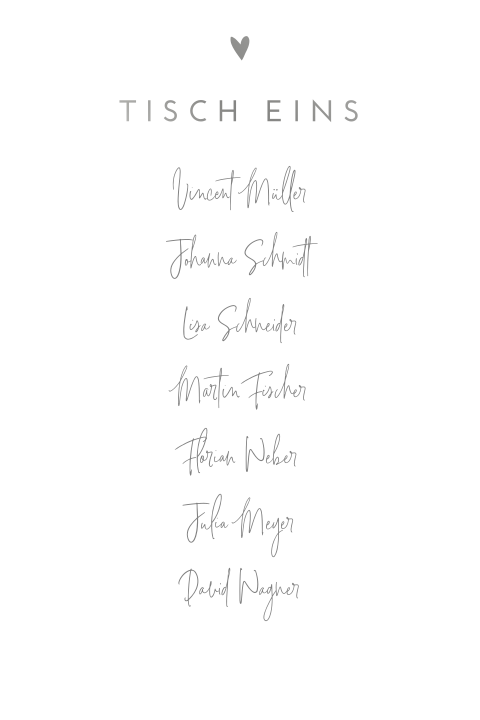 TISCH EINS
Vincent Müller
Johanna Schmidt
Lisa Schneider
Martin Fischer
Florian Weber
Julia Meyer
David Wagner